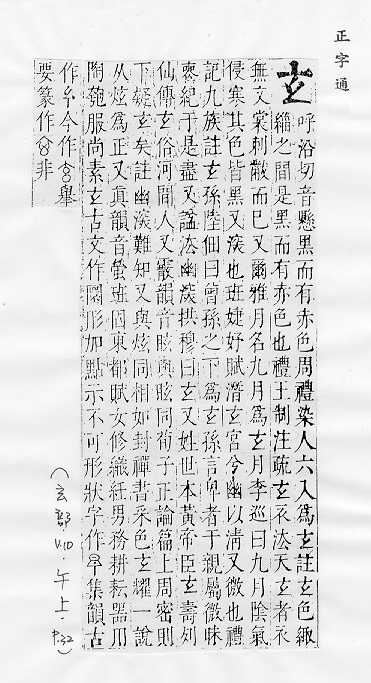 正字通
玄
呼沿切音懸黑而有赤色周禮染人六入爲玄註玄色緅
緇之間是黑而有赤色也禮王制注疏玄衣法天玄者衣
無文裳刺黻而巳又爾雅月名九月爲玄月李巡曰九月陰氣
侵寒其色皆黑又深也班婕妤賦潛玄宮今幽以清又微也禮
記九族註玄孫陸佃曰曾孫之下爲玄孫言卑者于親屬微昧
喪紀于是盡又諡法幽深拱穆曰玄又姓世本黃帝臣玄壽列
仙傳玄俗河間人又霰韻音眩與眩同荀子正論篇上周密則
下疑玄矣註幽深難知又與炫同相如封禪書采色玄耀一說
从炫爲正又眞韻音螢班固東都賦女修織紝男務耕耘器用
陶匏服尚素玄古文作𤣥形加點示不可形狀字作早集韻古
作𢆯今作玄舉
要篆作𤣥非
(玄部 V.10 午上 P.32)